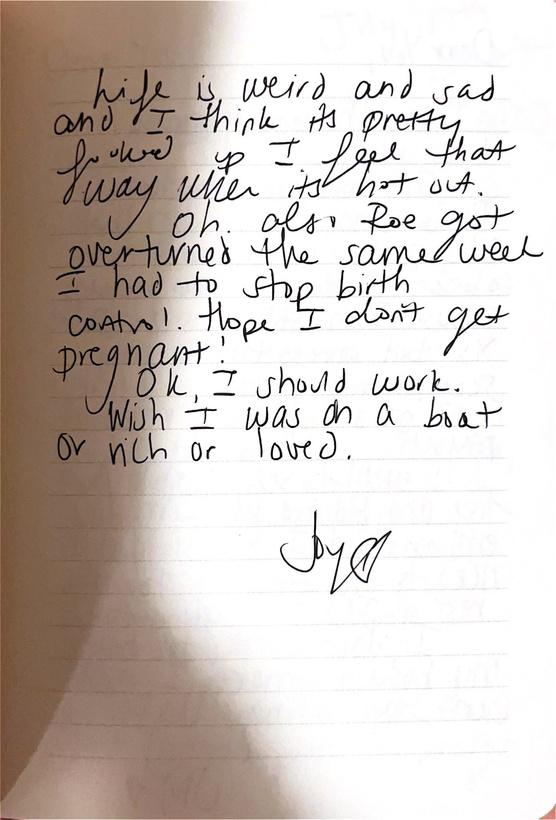 Life is weird and sad
and I think its pretty
fucked up I feel that
way when its hot out.
Oh. also Roe got
overturned the same week
I had to stop birth
control. Hope I don't get
pregnant!
Ok, I should work.
Wish I was on a boat
or rich or loved.
Joy